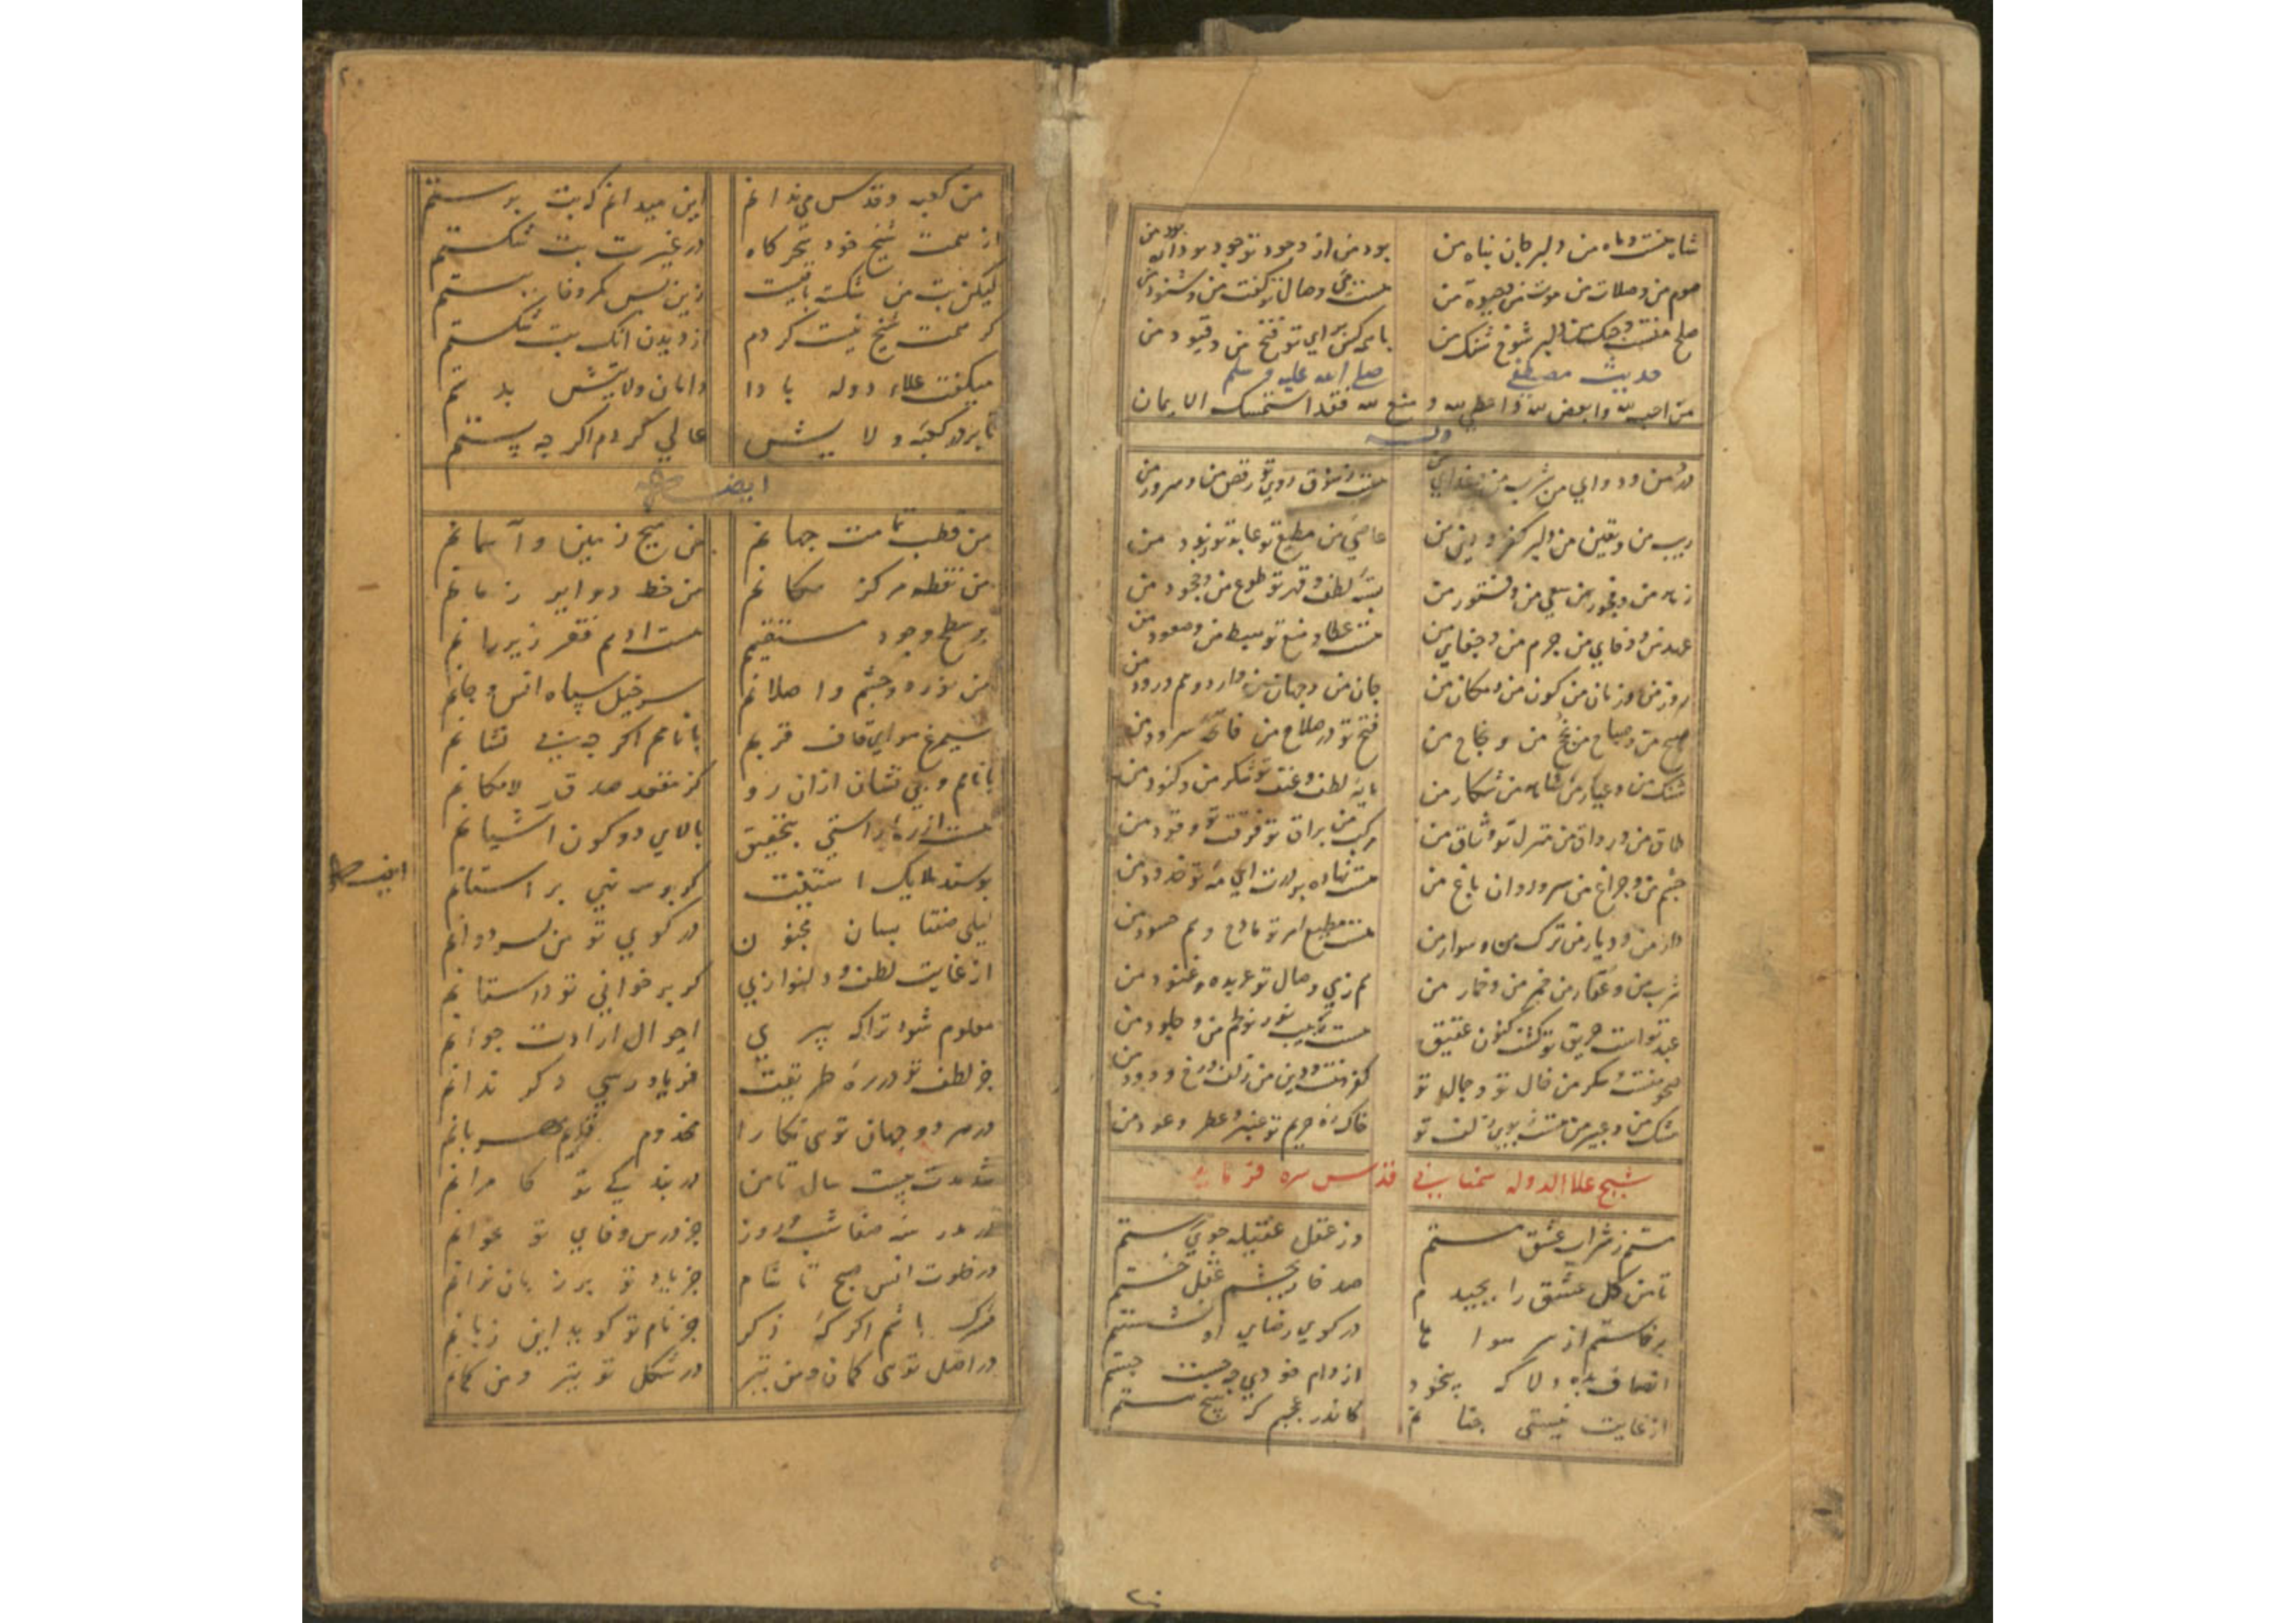 شاه منست و ماه من دلبر جان پناه من بود من از وجود تو جود تو داد بود من
صوم من و صلات من موت من و حیوة من هست می وصال تو گفت من و شنود من
صلح منست و جنک من دلبر شوخ شنک من با همه کس برای تو فتح من و قیود من
حدیث مصطفی صلی الله علیه و سلم
من احب لله و ابغض لله و اعطی لله و منع لله فقد استمسک الایمان
وله
درد من و دوای من شرب من و غذای من هست ز شوق روی تو رقص من و سرود من
ریب من و یقین من دلبر کفر و دین من عاصی من مطیع تو عابد تو من
زهد من و فجور من سعی من و فتور من بسته لطف و قهر تو طوع من و جحود من
عهد من و وفای من جرم من و جفای من هست عطا و منع تو هبوط من و صعود من
روز من و زمان من کون من و مکان من جان من و جهان من دارد و هم درود من
صبح من و صباح من نجح من و نجاح من فتح تو در صلاح من فاتحه سرود من
شنک من و عیار من شاه من شکار من مایه لطف و عنف تو شکر من و کنود من
طاق من و رواق من منزل تو وثاق من مرکب من براق تو فرقت تو وقود من
چشم من و چراغ من سرو روان باغ من هست نهاده بر درت ای مه تو خدود من
دار من و دیار من ترک من و سوار من هست مطیع امر تو مادح و هم حسود من
شرب من و عقار من خمر من و خمار من هم ز می وصال تو عربده و غنود من
عبد تو است حریق تو کشت کنون عتیق هست نور تو من و جلود من
صحو منست و سکر من خال تو و جمال تو کفر منست و دین من زلف و رخ و درود من
مشک من و عبیر من هست ز بوی زلف تو خاک ره حریم تو عنبر و عطر و عود من
شیخ علاالدوله سمنانی قدس سره فرماید
مستم ز شراب عشق مستم وز عقل عقیله جوی رستم
تا من کل عشق را بچیدم صد خار بچشم عقل خستم
برخاستم از سر هوا ها در کوی رضای او نشستم
انصاف بده دلا که بیخود از دام خودی چه جست جستم
از غایت نیستی چنانم کاندر عجبم که هیچ هستم
من کعبه و قدس می ندانم این میدانم که بت پرستم
از همت شیخ خود بحرکاه در غیرت بت شکستم
لیکن بت من شکسته باقیست زین پس مکر و فا پرستم
کر همت شیخ نیست کردم از دیدن آنک بت شکستم
میکفت علاء دوله بادا دامان ولایتش بدستم
تا بر در کعبه ولایتش عالی کردم اکر چه پستم
ایضا
من قطب تمامت جهانم من هیچ زمین و آسمانم
من نقطه مرکز مکانم من خط دوایر زمانم
بر سطح وجود مستقیم هست ادهم فقر زیر رانم
من نور دو چشم و اصلانم سرخیل سپاه انس و جانم
سیمرغ هوای قاف قربم با نامم اکر چه بی نشانم
با نام و بی نشان ازان رو کز مقعد صدق لامکانم
هست از ره راستی بتحقیق بالای دو کون اشیانم
بوسند ملایک استینت کر بوسه نهی بر استانم
ایضا
لیلی صفتا بسان مجنون در کوی تو من بسر دوانم
از غایت لطف و دلنوازی کر بر خوانی تو داستانم
معلوم شود ترا که پیری احوال ارادت جوانم
جز لطف تو در ره طریقت فریاد رسی دکر ندانم
در هر دو جهان توی نکارا مخدوم قدیم مهربانم
شد مدت بیست سال تا من در بند کی تو کامرانم
در مدرسه صفا شب و روز جز درس وفای تو نخوانم
در خلوت انس صبح تا شام جز یاد تو بر زبان نرانم
مشرک باشم اکر که ذکر جز نام تو کوید این زبانم
در اصل توی کمان و من تیر در شکل تو تیر و من کمانم